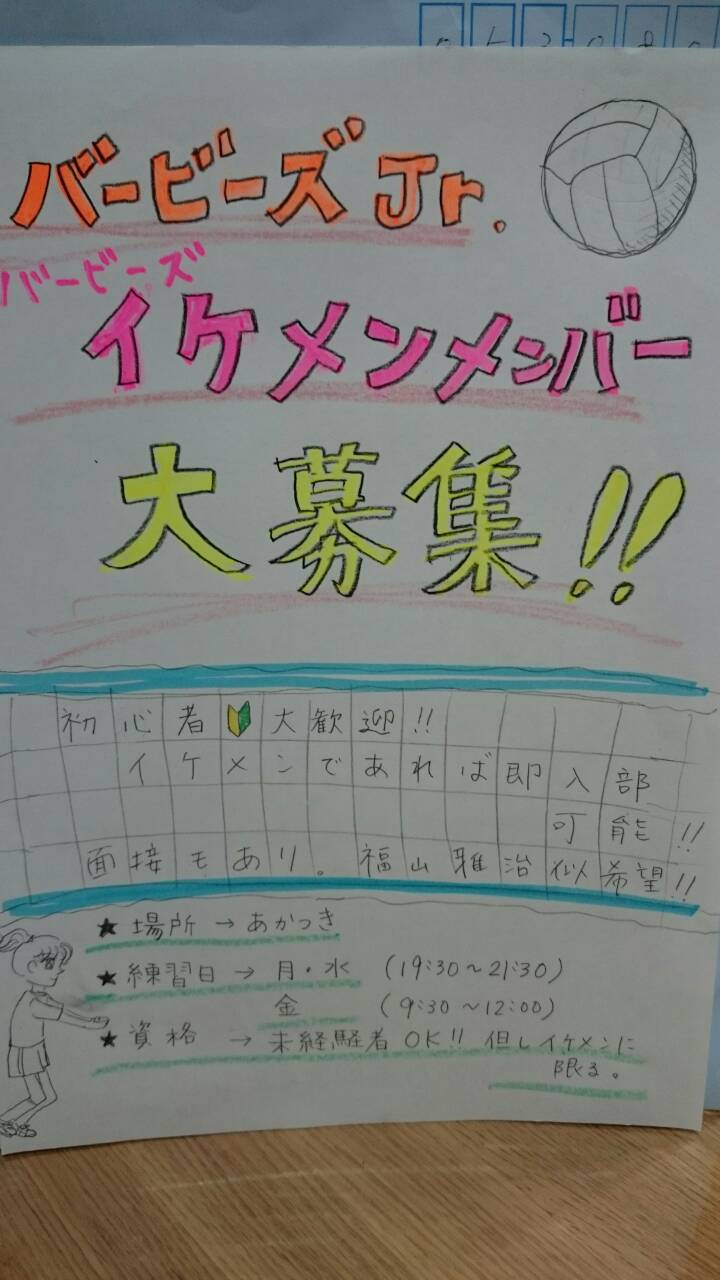 バービーズ Jr.
バービーズ
イケメンメンバー
大募集!!
初心者🔰大歓迎!!
イケメンであれば即入部
可能!!
面接もあり。福山雅治似希望!!
★ 場所 → あかつき
★ 練習日 → 月・水 (19:30～21:30)
金 (9:30～12:00)
★ 資格 → 未経験者 OK!! 但しイケメンに
限る。